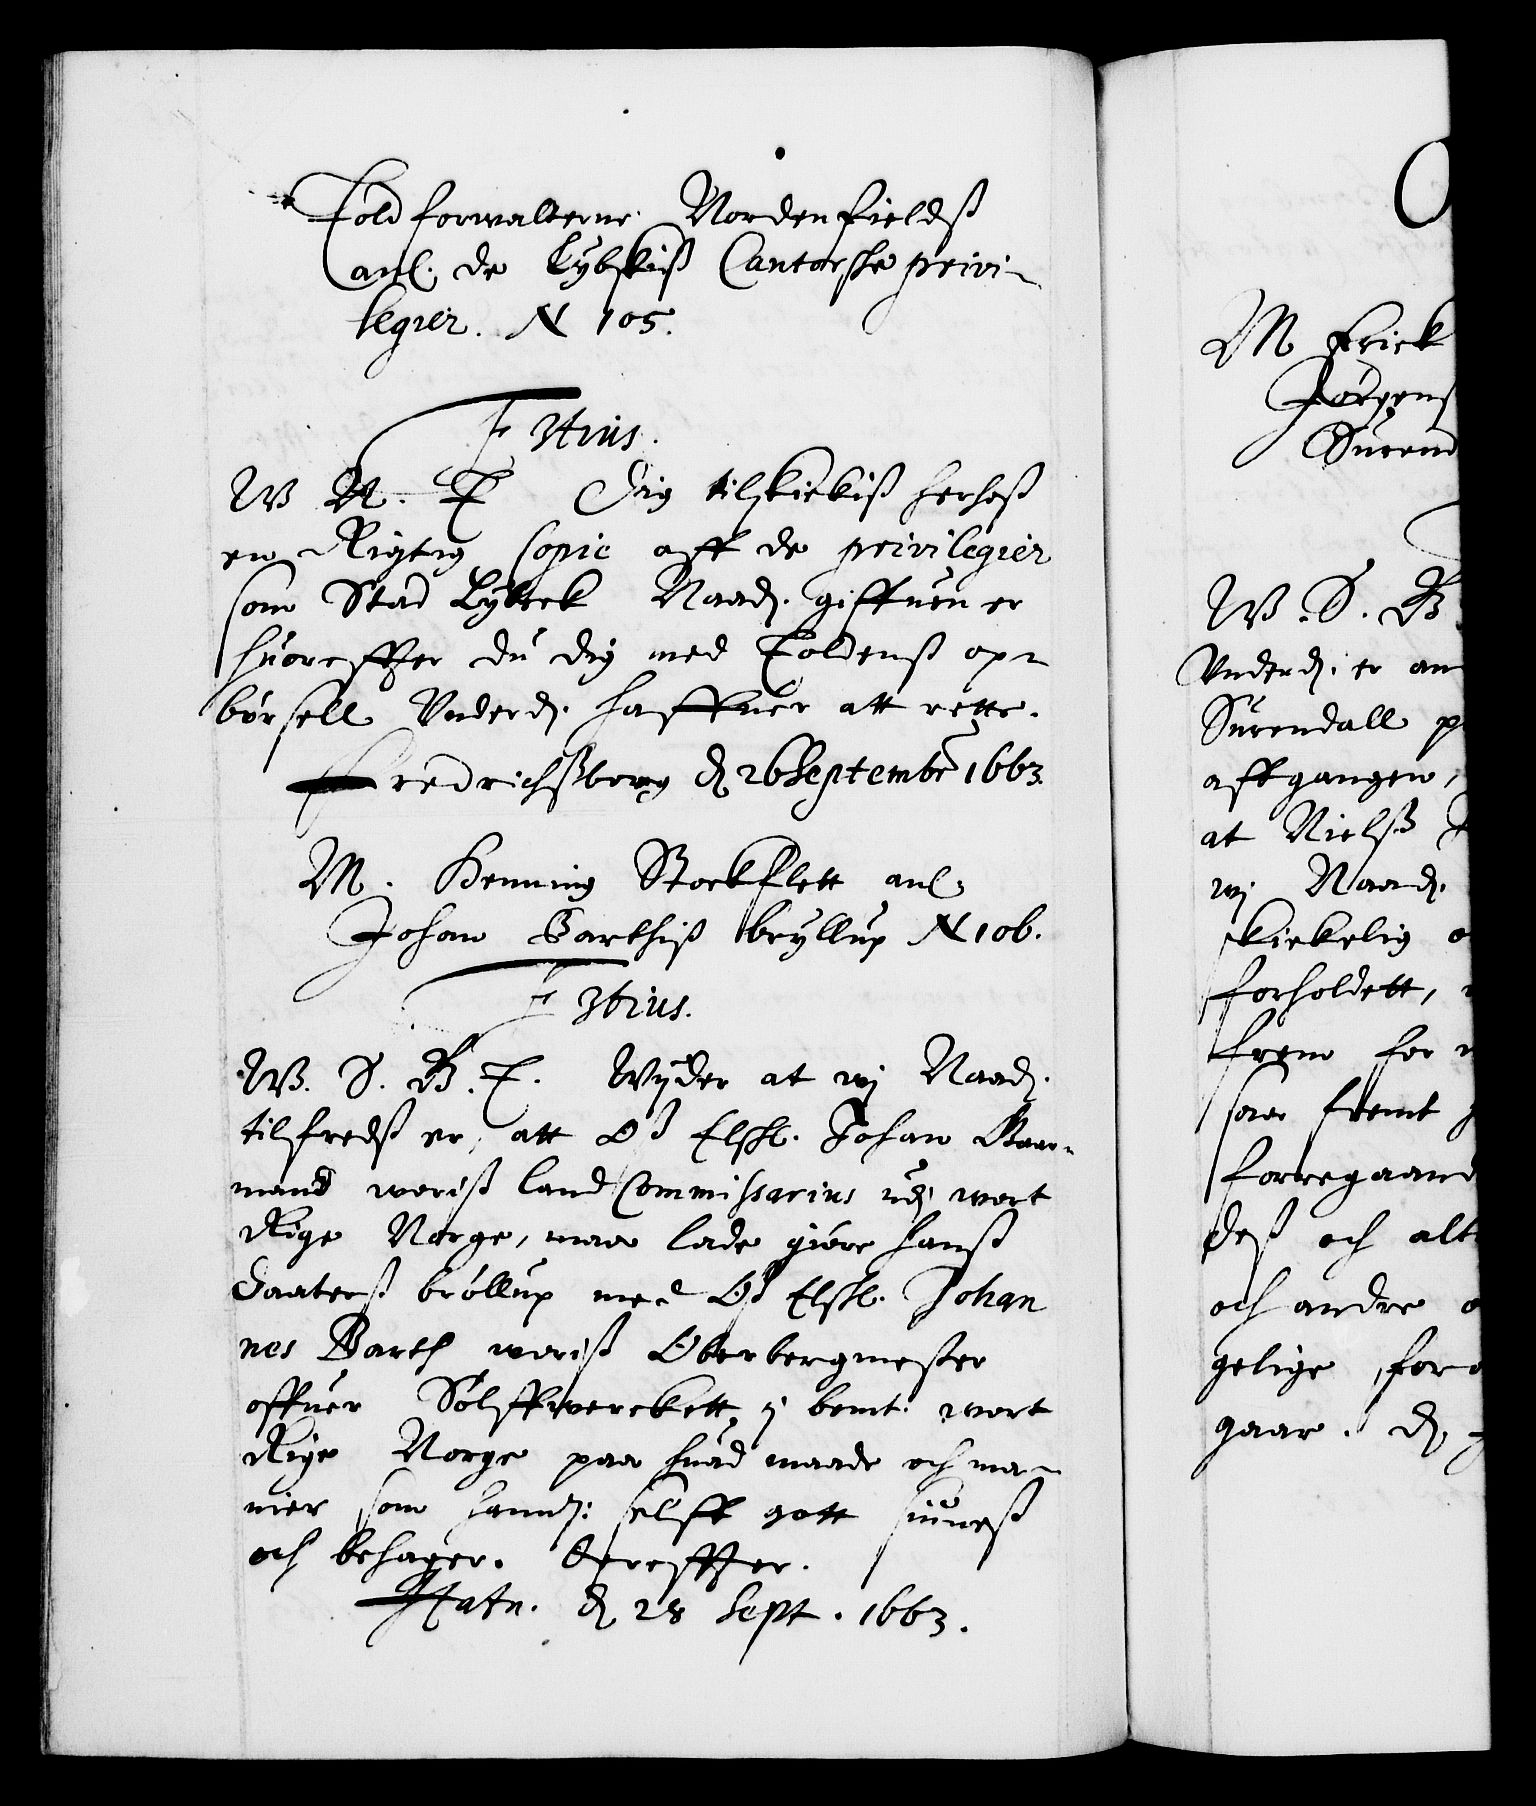 Told forwalterne Nordenfieldß
anl. de Lybskiß Cantorske privi-
legier. N 105.
F 3tius.
W N. T Dig tilskickiß herhoß
en Rigtig Copie aff de privilegier
som Stad Lybeck Naad. giffuen er
huoreffter du dig med Toldenß op-
børsell Underd. haffuer att rette.
Fredrichßborg d 26 Septembr 1663.
M. Henning Stockflett anl.
Johan Barthiß bryllup N 106.
F 3tius.
W. S. B. T. Wijder at wj Naad.
tilfredß er, att Oß Elskl. Johan
mand woriß land Commissarius udj wort
Rige Norge, maa lade giøre hanß
Daaterß brøllup med Oß Elskl. Johan
nes Barth woriß Oberbergmester
offuer Sølffwerckett, j bemt. wort
Rige Norge paa huad maade och ma-
nier som hannd: selff gott siuneß
och behager. Dereffter.
Hafn. d 28 Sept. 1663.
M Erick
Jørgens
Surend
W. S. B.
Underd. er an
Surendall p
affgangen,
at Nielß
wj Naad.
skickelig o
forholdett,
frem for
saa fremt
forregaaend
deß och alt
och andre o
gelige, for
gaar. d.